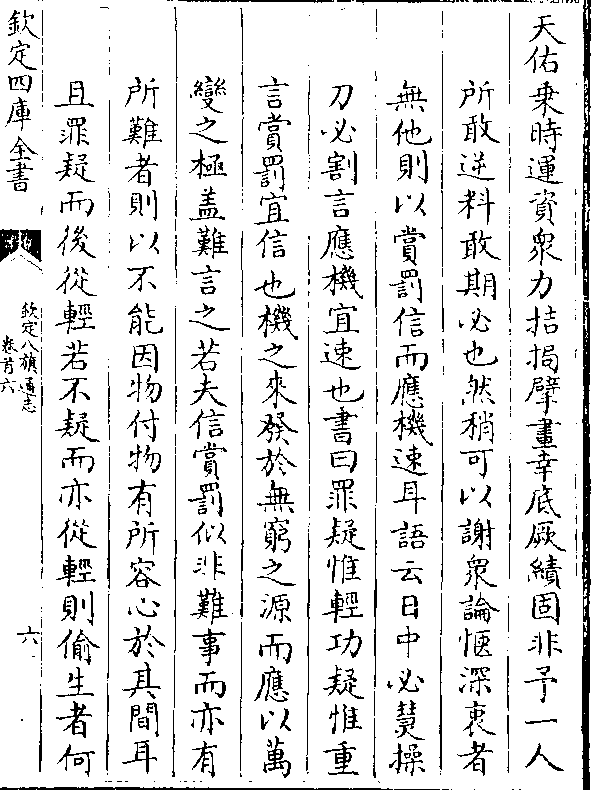 天佑乘時運資衆力拮据擘畫幸底厥績固非予一人
所敢逆料敢期必也然稍可以謝衆論愜深衷者
無他則以賞罰信而應機速耳語云日中必熭操
刀必割言應機宜速也書曰罪疑惟輕功疑惟重
言賞罰宜信也機之來發於無窮之源而應以萬
變之極盖難言之若夫信賞罰似非難事而亦有
所難者則以不能因物付物有所容心於其間耳
且罪疑而後從輕若不疑而亦從輕則偷生者何
欽定四庫全書
欽定八旗通志
卷首六
六